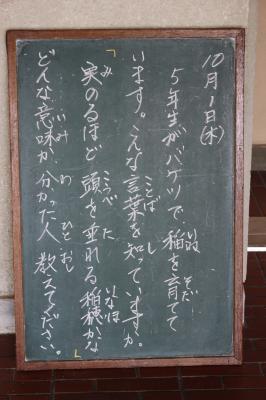 10月1日(木)
5年生がバケツで、稲を育てて
います。こんな言葉を知っていますか。
「実のるほど 頭を垂れる 稲穂かな」
どんな意味か、分かった人 教えてください。